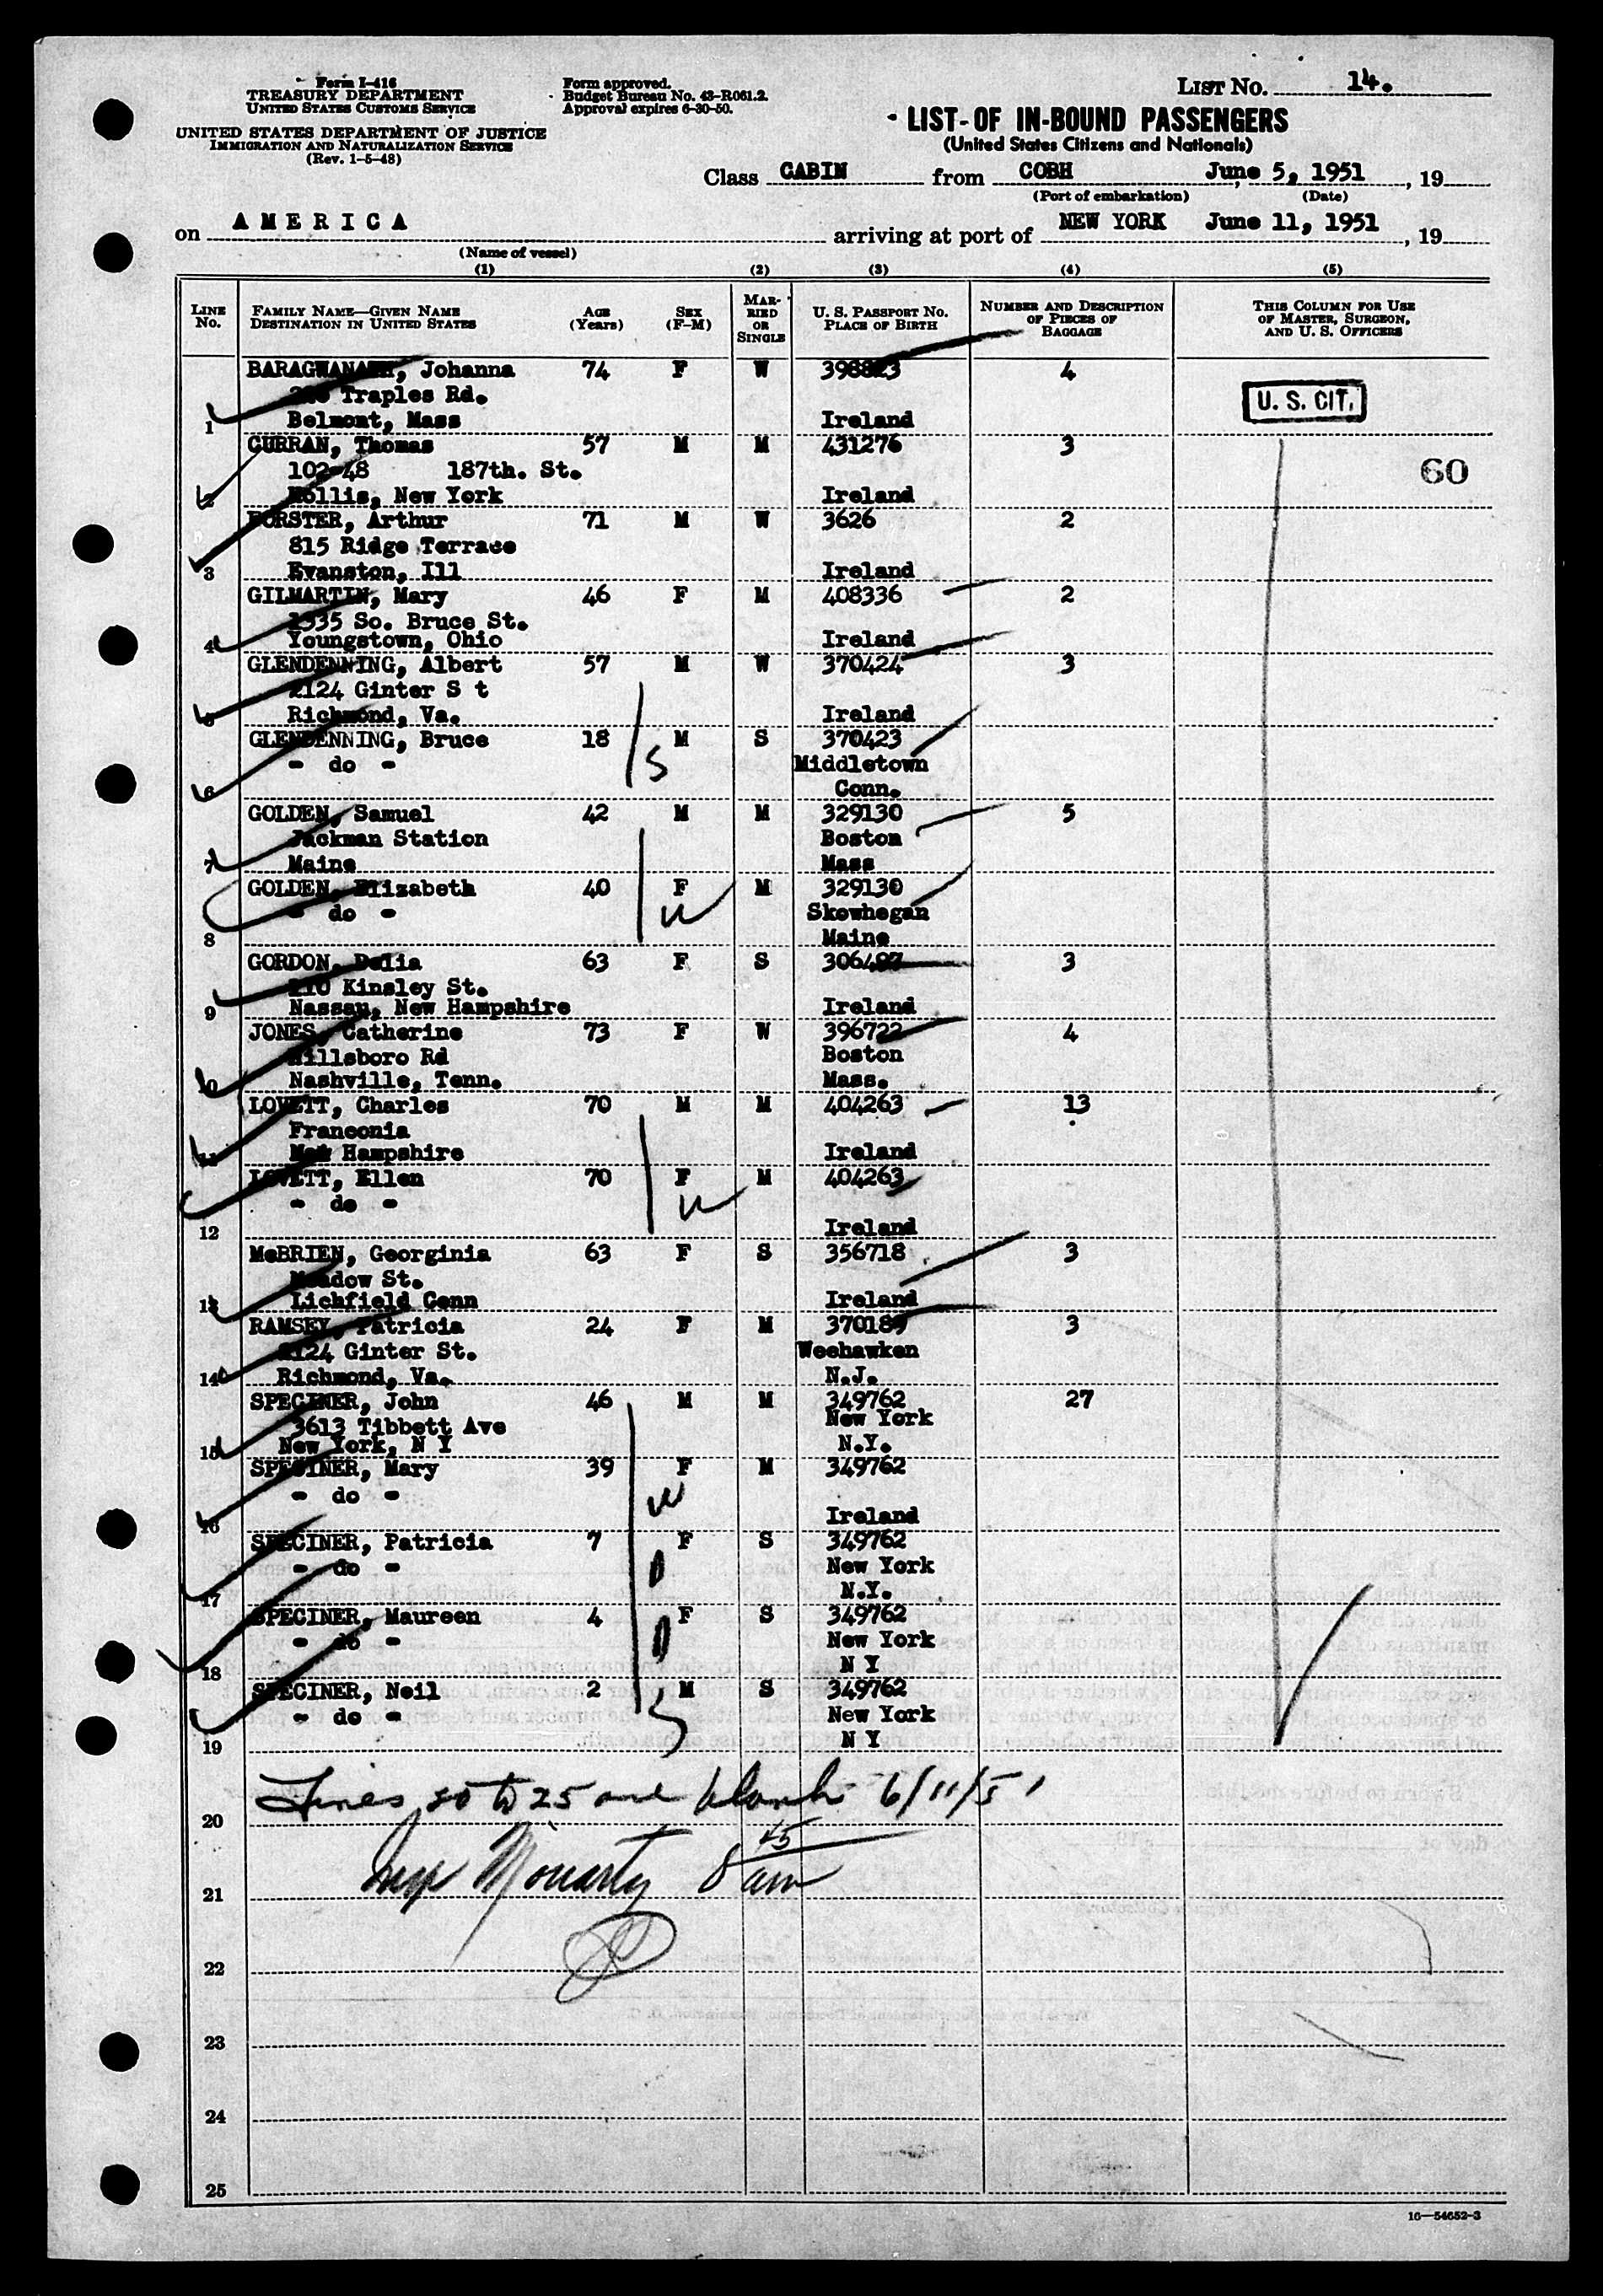 Form I-416
TREASURY DEPARTMENT
UNITED STATES CUSTOMS SERVICE
UNITED STATES DEPARTMENT OF JUSTICE
IMMIGRATION AND NATURALIZATION SERVICE
(Rev. 1-5-48)
Form approved.
Budget Bureau No. 43-R061.2.
Approval expires 6-30-50.
LIST NO. 14.
LIST OF IN-BOUND PASSENGERS
(United States Citizens and Nationals)
Class CABIN from COBH June 5, 1951, 19
(Port of embarkation) (Date)
on A M E R I C A arriving at port of NEW YORK June 11, 1951, 19
(Name of vessel)
(1) (2) (3) (4) (5)
LINE NO. FAMILY NAME—GIVEN NAME DESTINATION IN UNITED STATES AGE (Years) SEX (F-M) MARRIED OR SINGLE U. S. PASSPORT NO. PLACE OF BIRTH NUMBER AND DESCRIPTION OF PIECES OF BAGGAGE THIS COLUMN FOR USE OF MASTER, SURGEON, AND U. S. OFFICERS
BARAGWANATH, Johanna 74 F W 398823 4
Traples Rd. U. S. CIT.
1 Belmont, Mass Ireland
CURRAN, Thomas 57 M M 431276 3
102-48 187th. St. 60
2 Hollis, New York Ireland
FORSTER, Arthur 71 M W 3626 2
815 Ridge Terrace
3 Evanston, Ill Ireland
GILMARTIN, Mary 46 F M 408336 2
1335 So. Bruce St.
4 Youngstown, Ohio Ireland
GLENDENNING, Albert 57 M W 370424 3
2124 Ginter S t
5 Richmond, Va. Ireland
GLENDENNING, Bruce 18 M S 370423
- do - S Middletown
6 Conn.
GOLDEN, Samuel 42 M M 329130 5
Jackman Station Boston
7 Maine Mass
GOLDEN, Elizabeth 40 F M 329130
- do - W Skowhegan
8 Maine
GORDON, Delia 63 F S 306497 3
210 Kinsley St.
9 Nassau, New Hampshire Ireland
JONES, Catherine 73 F W 396722 4
Hillsboro Rd Boston
10 Nashville, Tenn. Mass.
LOVETT, Charles 70 M M 404263 13
Franconia
11 New Hampshire Ireland
LOVETT, Ellen 70 F M 404263
- do - W
12 Ireland
McBRIEN, Georginia 63 F S 356718 3
Meadow St.
13 Lichfield Conn Ireland
RAMSEY, Patricia 24 F M 370189 3
2124 Ginter St. Weehawken
14 Richmond, Va. N.J.
SPECINER, John 46 M M 349762 27
3613 Tibbett Ave New York
15 New York, N Y N.Y.
SPECINER, Mary 39 F M 349762
- do - W
16 Ireland
SPECINER, Patricia 7 F S 349762
- do - D New York
17 N.Y.
SPECINER, Maureen 4 F S 349762
- do - D New York
18 N Y
SPECINER, Neil 2 M S 349762
- do - S New York
19 N Y
Lines 20 to 25 are blank 6/11/51
20
Insp Moriarty 8 45 am
21
22
23
24
25
16—54652-3